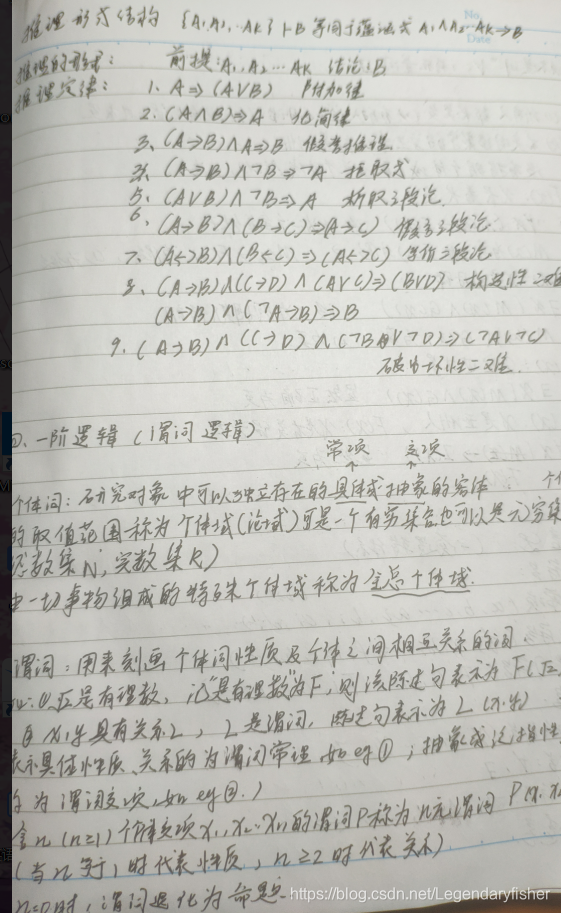 推理形式结构 {A₁,A₂,…AK}⊢B 等同于蕴涵式 A₁∧A₂…AK→B
No.
Date
推理的形式: 前提:A₁,A₂…AK 结论:B
推理定律: 1. A⇒(A∨B) 附加律
2. (A∧B)⇒A 化简律
3. (A→B)∧A⇒B 假言推理
(A→B)∧¬B⇒¬A 拒取式
5. (A∨B)∧¬B⇒A 析取三段论
6. (A→B)∧(B→C)⇒(A→C) 假言三段论
7. (A↔B)∧(B↔C)⇒(A↔C) 等价三段论
8. (A→B)∧(C→D)∧(A∨C)⇒(B∨D) 构造性二难
(A→B)∧(¬A→B)⇒B
9. (A→B)∧(C→D)∧(¬B∨¬D)⇒(¬A∨¬C)
破坏性二难.
四、一阶逻辑(谓词逻辑)
常项 变项
个体词:研究对象中可以独立存在的具体或抽象的客体 个
的取值范围称为个体域(论域)可是一个有穷集合也可以是无穷集
数集N,实数集R)
由一切事物组成的特殊个体域称为全总个体域.
谓词:用来刻画个体词性质及个体之间相互关系的词.
是有理数,记"是有理数"为F,则该陈述句表示为F(
x,y具有关系L,L是谓词,陈述句表示为L(x,y)
表示具体性质、关系的为谓词常项,如eg①;抽象或泛指性
的为谓词变项,如eg②.)
含n(n≥1)个个体变项x₁,x₂…xn的谓词P称为n元谓词 P(x₁,x
(当n等于1时代表性质,n≥2时代表关系)
n=0时,谓词退化为命题.
https://blog.csdn.net/Legendaryfisher